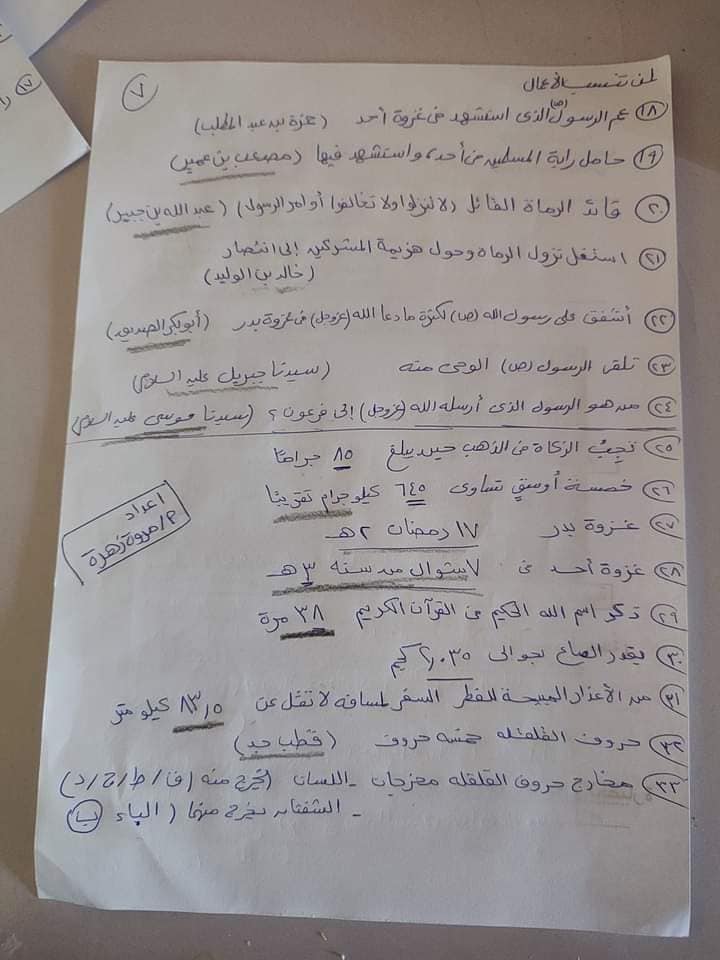 ٧
لمن تنسب الأعمال
١٨ عم الرسول (ص) الذى استشهد فى غزوة أحد (حمزة بن عبد المطلب)
١٩ حامل راية المسلمين فى أحد، واستشهد فيها (مصعب بن عمير)
٢٠ قائد الرماة القائل (لا تنزلوا ولا تخالفوا أوامر الرسول) (عبد الله بن جبير)
٢١ استغل نزول الرماة وحول هزيمة المشركين إلى انتصار
(خالد بن الوليد)
٢٢ أشفق على رسول الله (ص) لكثرة ما دعا الله (عزوجل) فى غزوة بدر (أبو بكر الصديق)
٢٣ تلقى الرسول (ص) الوحى منه (سيدنا جبريل عليه السلام)
٢٤ من هو الرسول الذى أرسله الله (عزوجل) إلى فرعون؟ (سيدنا موسى عليه السلام)
٢٥ تجب الزكاة فى الذهب حين يبلغ ٨٥ جرامًا
٢٦ خمسة أوسق تساوى ٦٤٥ كيلو جرام تقريبًا
اعداد
م/مروة زهرة
٢٧ غزوة بدر ١٧ رمضان ٢ هـ
٢٨ غزوة أحد فى ٧ شوال من سنة ٣ هـ
٢٩ ذكر اسم الله الحكيم فى القرآن الكريم ٣٨ مرة
٣٠ يقدر الصاع بحوالى ٢,٠٣٥ كجم
٣١ من الأعذار المبيحة للفطر السفر لمسافة لا تقل عن ٨٣,٥ كيلو متر
٣٢ حروف القلقلة خمسة حروف (قطب جد)
٣٣ مخارج حروف القلقلة مخرجان - اللسان (تخرج منه (ق/ط/ج/د)
- الشفتان يخرج منهما (الباء ب)
١٧